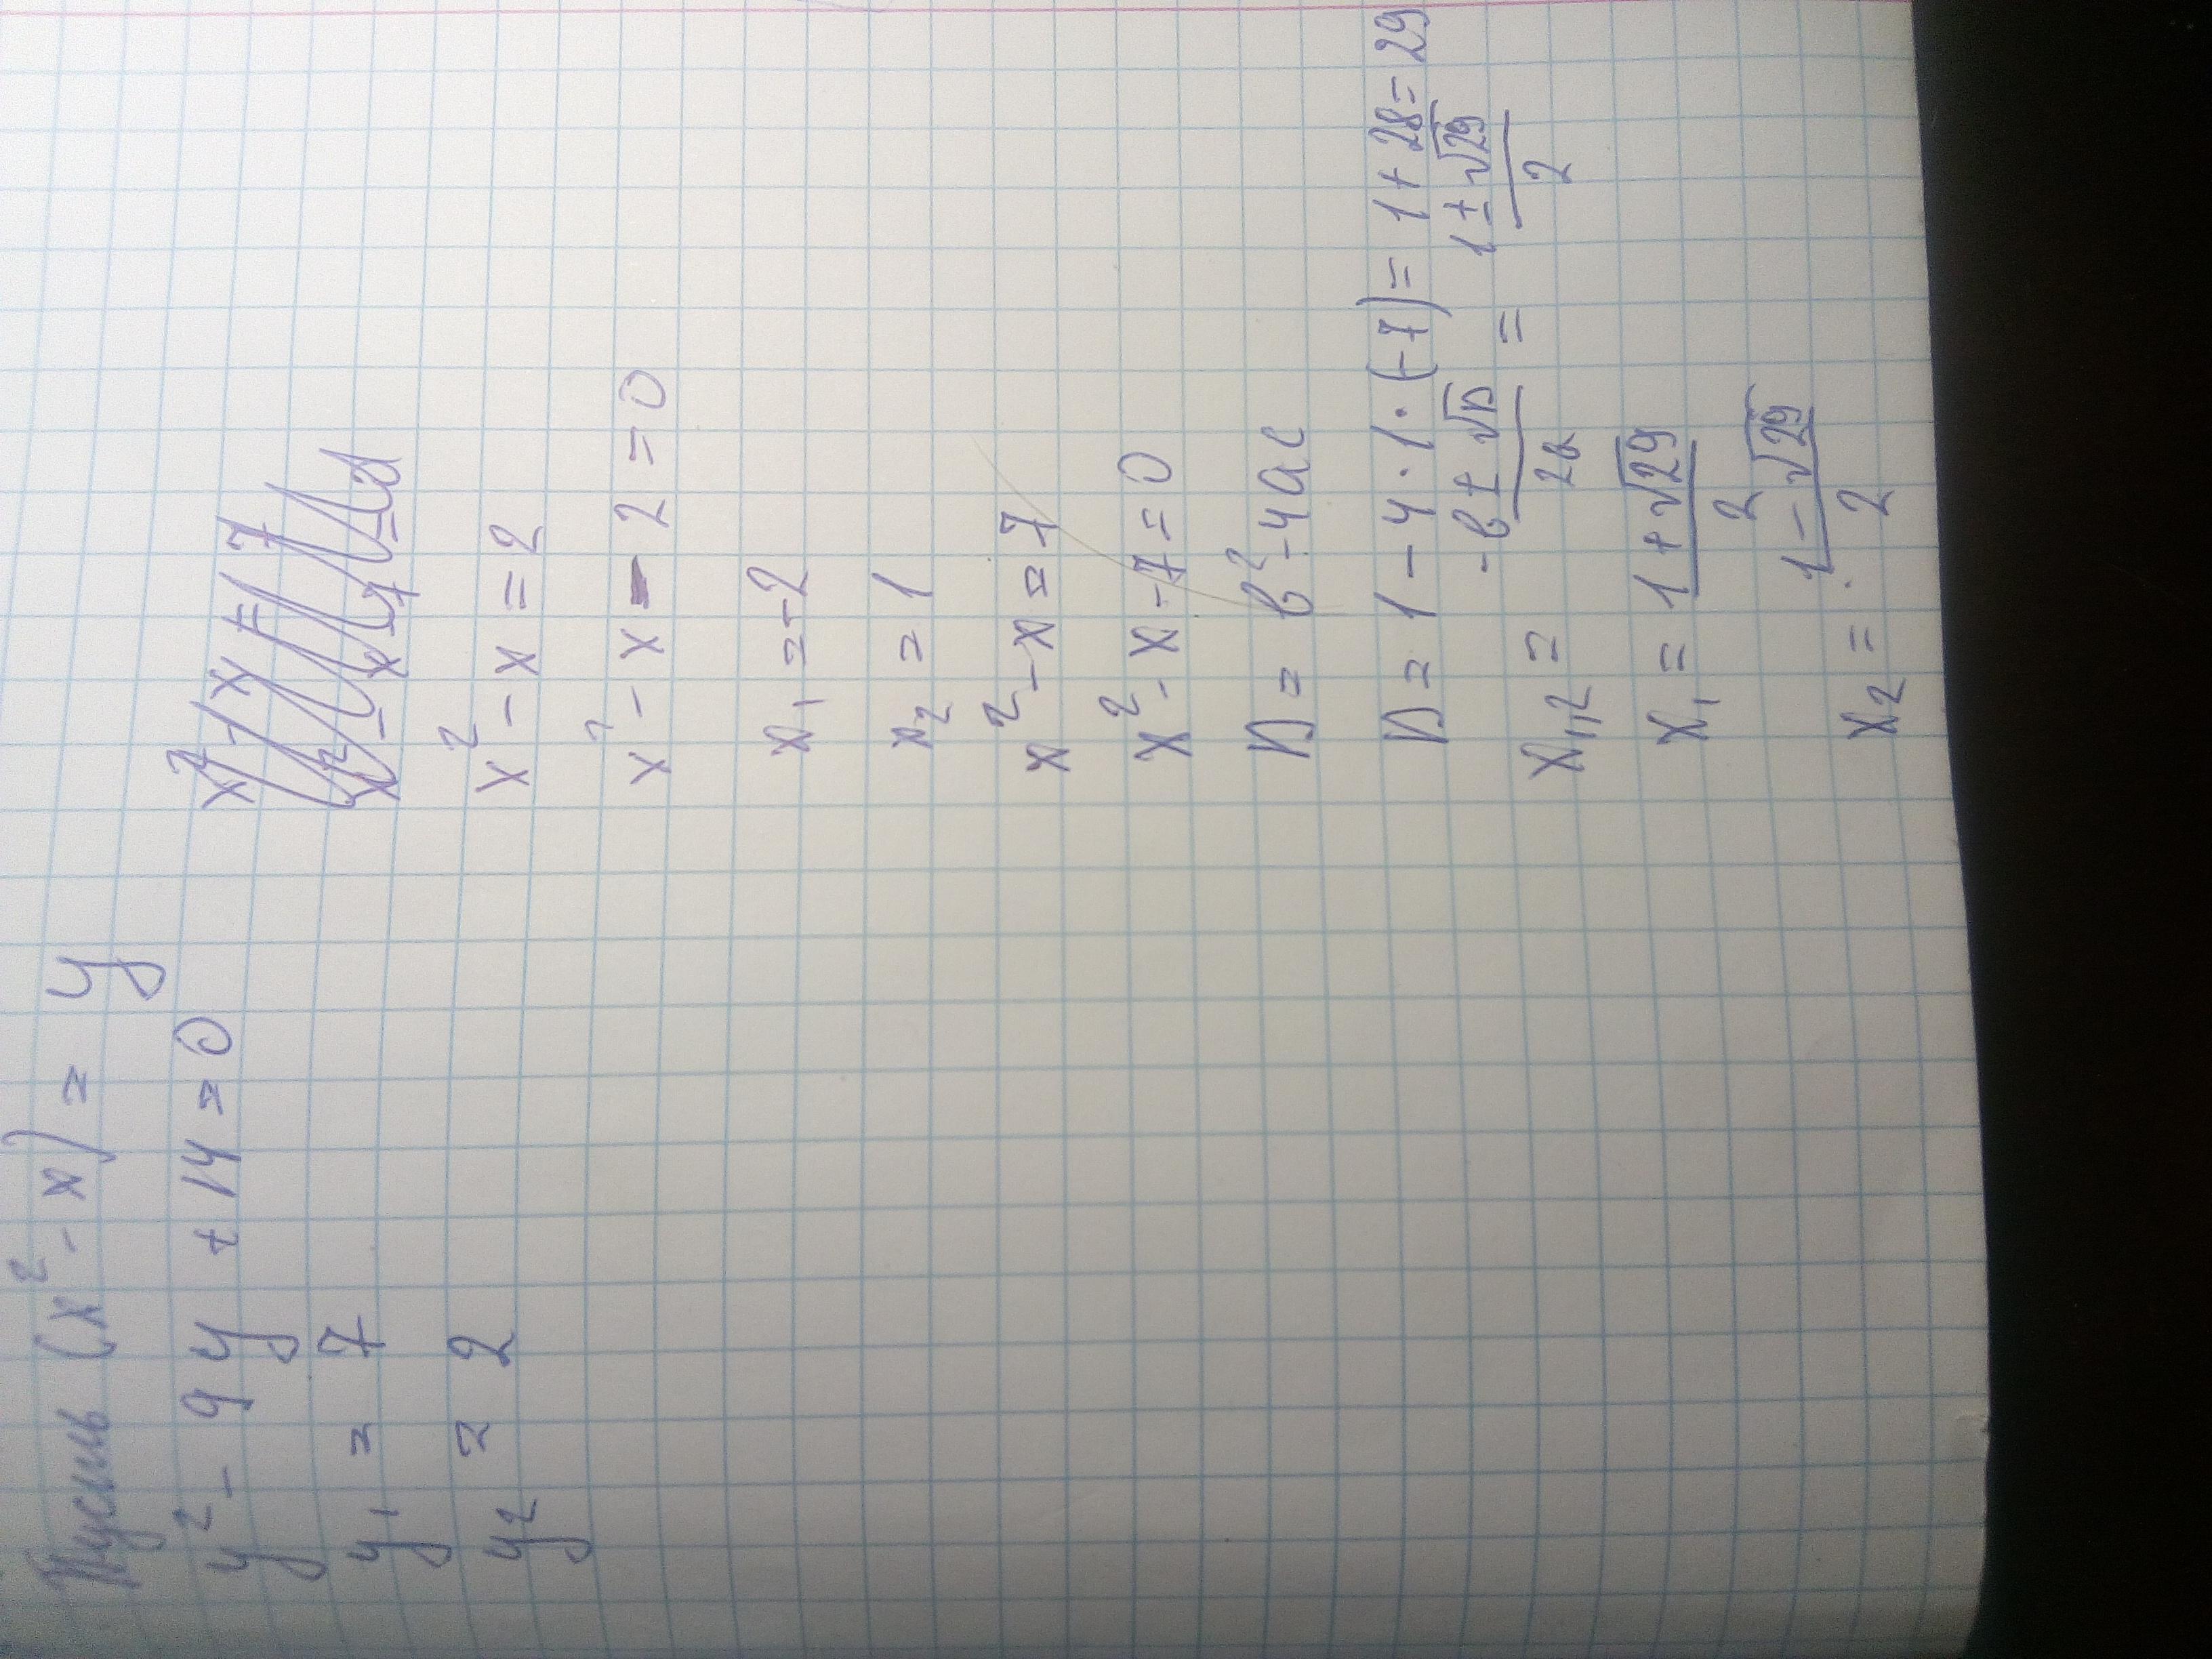 Пусть (x² - x) = y
y² - 9y + 14 = 0
y₁ = 7
y₂ = 2
x² - x = 7
x² - x = 2
x² - x - 2 = 0
x₁ = -2
x₂ = 1
x² - x = 7
x² - x - 7 = 0
D = b² - 4ac
D = 1 - 4 · 1 · (-7) = 1 + 28 = 29
x₁,₂ = (-b ± √D)/2a = (1 ± √29)/2
x₁ = (1 + √29)/2
x₂ = (1 - √29)/2